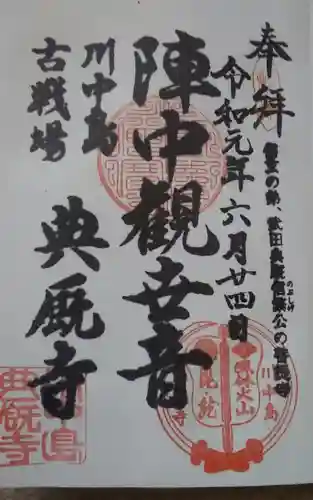 奉拝
信玄の弟、武田典厩信繁公の菩提寺
のぶしげ
令和元年六月廿四日
陣中観世音
川中島
古戦場
典厩寺
川中島
風林火山
典厩寺